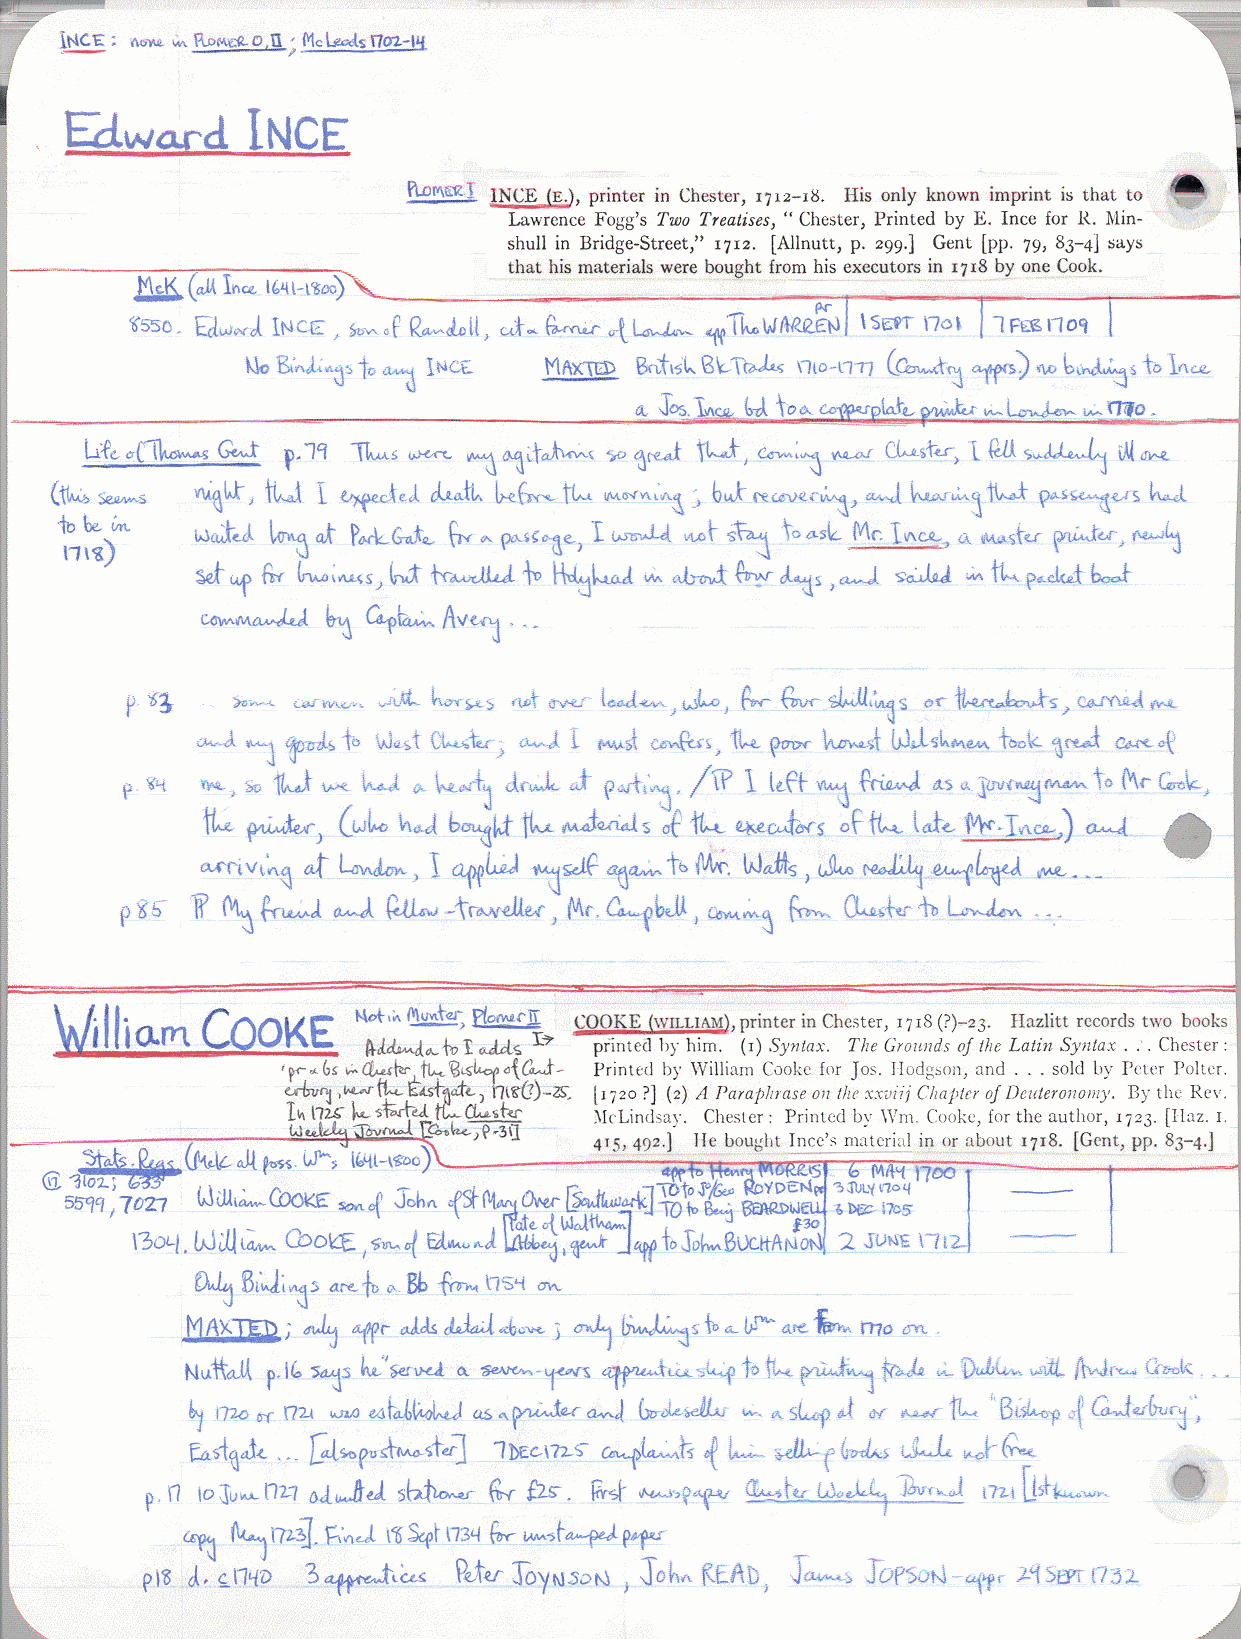 INCE: none in PLOMER O, II; McLeods 1702-14
Edward INCE
PLOMER I INCE (E.), printer in Chester, 1712–18. His only known imprint is that to
Lawrence Fogg's Two Treatises, “ Chester, Printed by E. Ince for R. Min-
shull in Bridge-Street,” 1712. [Allnutt, p. 299.] Gent [pp. 79, 83–4] says
that his materials were bought from his executors in 1718 by one Cook.
McK (all Ince 1641-1800)
8550. Edward INCE, son of Randoll, cit & farrier of London app Tho WARREN pr 1 SEPT 1701 7 FEB 1709
No Bindings to any INCE MAXTED British Bk Trades 1710-1777 (Country apprs.) no bindings to Ince
a Jos. Ince bd to a copperplate printer in London in 1770.
Life of Thomas Gent p.79 Thus were my agitations so great that, coming near Chester, I fell suddenly ill one
(this seems night, that I expected death before the morning; but recovering, and hearing that passengers had
to be in waited long at Park Gate for a passage, I would not stay to ask Mr. Ince, a master printer, newly
1718) set up for business, but travelled to Holyhead in about four days, and sailed in the packet boat
commanded by Captain Avery...
p. 83 ... some carmen with horses not over loaden, who, for four shillings or thereabouts, carried me
and my goods to West Chester; and I must confess, the poor honest Welshmen took great care of
p. 84 me, so that we had a hearty drink at parting. /¶ I left my friend as a journeyman to Mr Cook,
the printer, (who had bought the materials of the executors of the late Mr. Ince,) and
arriving at London, I applied myself again to Mr. Watts, who readily employed me...
p85 ¶ My friend and fellow-traveller, Mr. Campbell, coming from Chester to London ...
William COOKE Not in Munter, Plomer II
Addenda to I adds I>
'pr & bs in Chester, the Bishop of Cant-
erbury, near the Eastgate, 1718(?)-25.
In 1725 he started the Chester
Weekly Journal [Cooke, p.31]
COOKE (WILLIAM), printer in Chester, 1718 (?)–23. Hazlitt records two books
printed by him. (1) Syntax. The Grounds of the Latin Syntax . . . Chester :
Printed by William Cooke for Jos. Hodgson, and . . . sold by Peter Potter.
[1720 ?] (2) A Paraphrase on the xxviij Chapter of Deuteronomy. By the Rev.
McLindsay. Chester : Printed by Wm. Cooke, for the author, 1723. [Haz. I.
415, 492.] He bought Ince's material in or about 1718. [Gent, pp. 83–4.]
Stats. Regs (McK all poss. Wms 1641-1800)
3102; 633
5599, 7027 William COOKE son of John of St Mary Over [Southwark] app to Henry MORRIS 6 MAY 1700
TO to Jo/Geo ROYDEN 3 JULY 1704
TO to Benj BEARDWELL 6 DEC 1705
1304. William COOKE, son of Edmund [late of Waltham Abbey, gent] app to John BUCHANON £30 2 JUNE 1712
Only Bindings are to a Bb from 1754 on
MAXTED; only appr adds detail above; only bindings to a Wm are from 1770 on.
Nuttall p.16 says he "served a seven-years apprenticeship to the printing trade in Dublin with Andrew Crook ...
by 1720 or 1721 was established as a printer and bookseller in a shop at or near the "Bishop of Canterbury",
Eastgate ... [also postmaster] 7 DEC 1725 complaints of him selling books while not free
p.17 10 June 1727 admitted stationer for £25. First newspaper Chester Weekly Journal 1721 [1st known
copy May 1723]. Fined 18 Sept 1734 for unstamped paper
p18 d. c1740 3 apprentices Peter JOYNSON, John READ, James JOPSON - appr 29 SEPT 1732